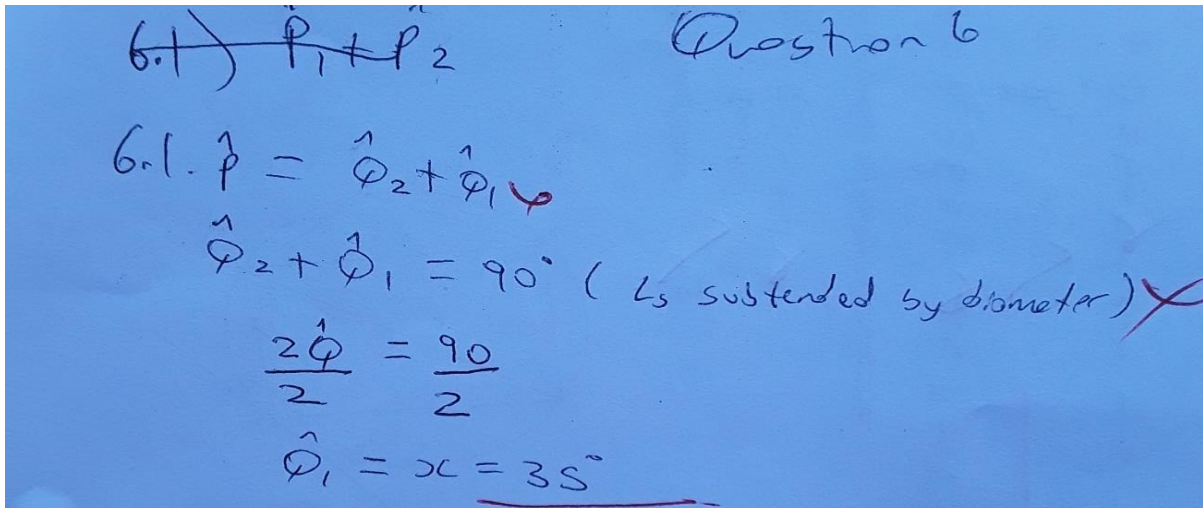 6.1) P̂₁ + P̂₂
Question 6
6.1. P̂ = Q̂₂ + Q̂₁
Q̂₂ + Q̂₁ = 90° ( ∠s subtended by diameter)
2Q̂ = 90
2 2
Q̂₁ = x = 35°